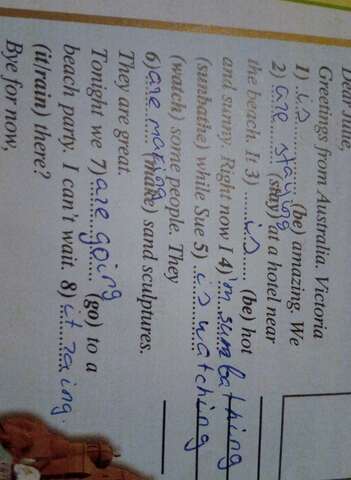 Dear Julie,
Greetings from Australia. Victoria
1) is (be) amazing. We
2) are staying (stay) at a hotel near
the beach. It 3) is (be) hot
and sunny. Right now I 4) 'm sumbathing
(sunbathe) while Sue 5) is watching
(watch) some people. They
6) are making (make) sand sculptures.
They are great.
Tonight we 7) are going (go) to a
beach party. I can't wait. 8) it raing.
(it/rain) there?
Bye for now,